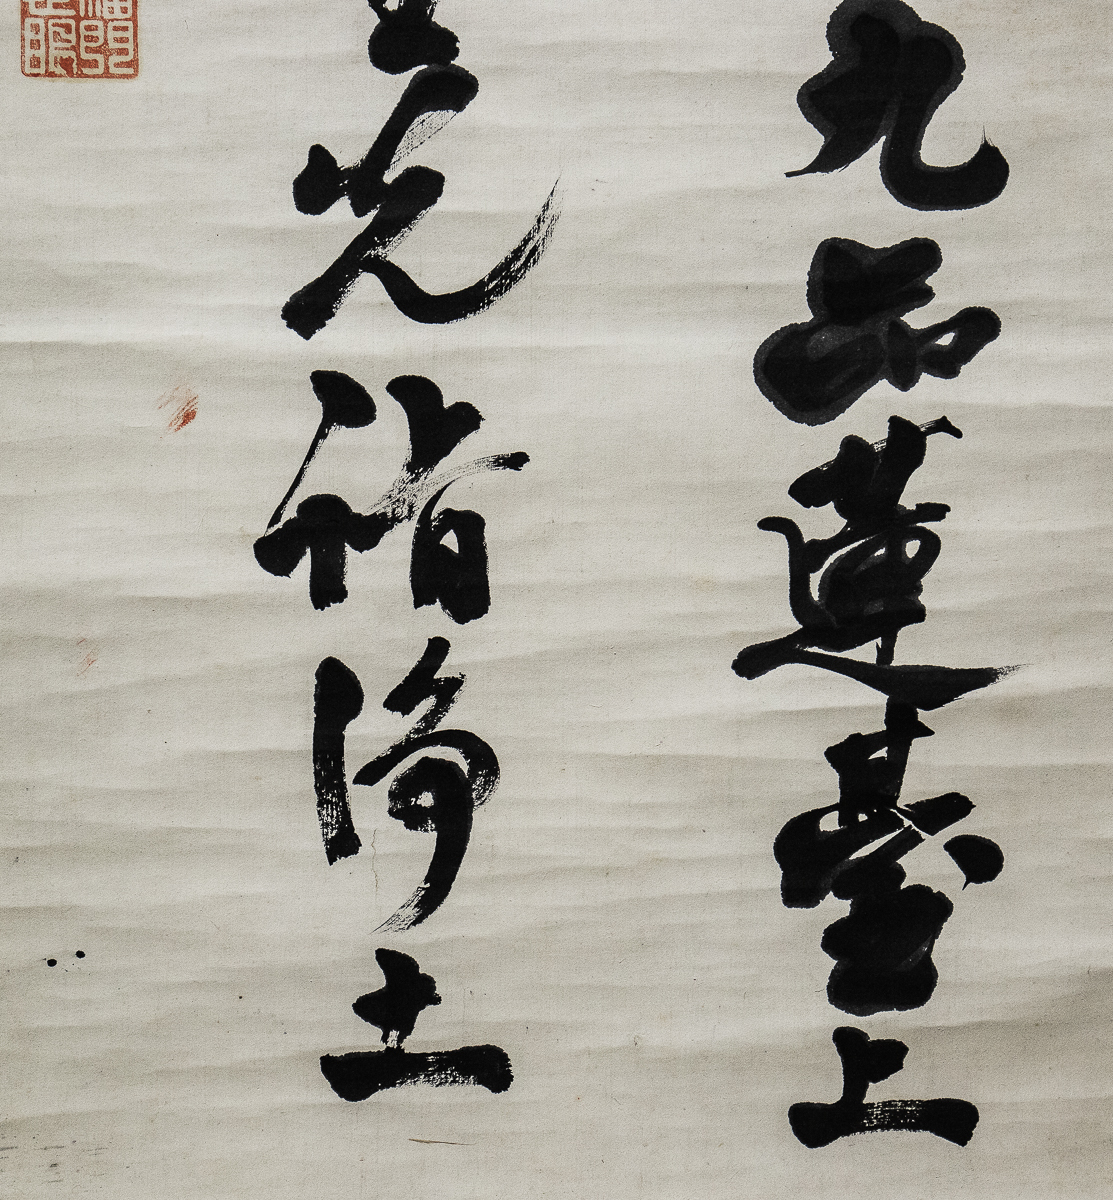 九品蓮臺上
光詣淨土